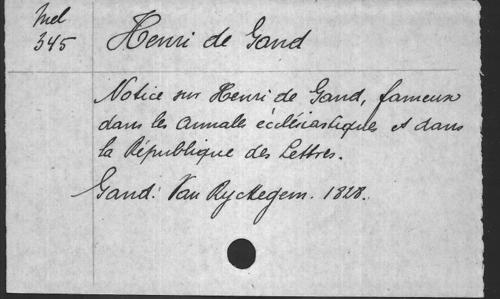 Mel
345
Henri de Gand
Notice sur Henri de Gand, fameux
dans les annales ecclésiastiques et dans
la République des Lettres.
Gand: Van Ryckegem. 1828.